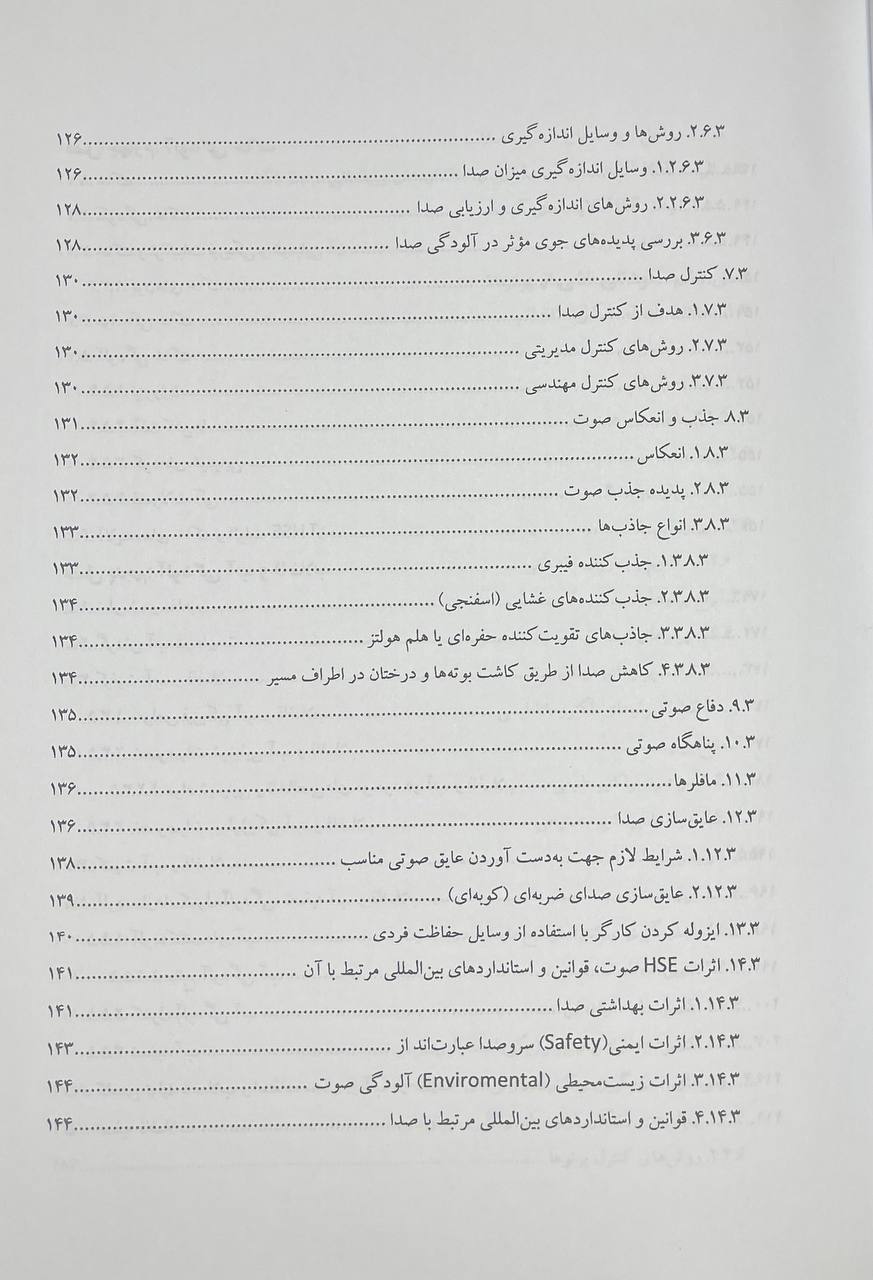 ۲.۶.۳. روش‌ها و وسایل اندازه‌گیری ........ ۱۲۶
۱.۲.۶.۳. وسایل اندازه‌گیری میزان صدا ........ ۱۲۶
۲.۲.۶.۳. روش‌های اندازه‌گیری و ارزیابی صدا ........ ۱۲۸
۳.۶.۳. بررسی پدیده‌های جوی مؤثر در آلودگی صدا ........ ۱۲۸
۷.۳. کنترل صدا ........ ۱۳۰
۱.۷.۳. هدف از کنترل صدا ........ ۱۳۰
۲.۷.۳. روش‌های کنترل مدیریتی ........ ۱۳۰
۳.۷.۳. روش‌های کنترل مهندسی ........ ۱۳۰
۸.۳. جذب و انعکاس صوت ........ ۱۳۱
۱.۸.۳. انعکاس ........ ۱۳۲
۲.۸.۳. پدیده جذب صوت ........ ۱۳۲
۳.۸.۳. انواع جاذب‌ها ........ ۱۳۳
۱.۳.۸.۳. جذب‌کننده فیبری ........ ۱۳۳
۲.۳.۸.۳. جذب‌کننده‌های غشایی (اسفنجی) ........ ۱۳۴
۳.۳.۸.۳. جاذب‌های تقویت‌کننده حفره‌ای یا هلم هولتز ........ ۱۳۴
۴.۳.۸.۳. کاهش صدا از طریق کاشت بوته‌ها و درختان در اطراف مسیر ........ ۱۳۴
۹.۳. دفاع صوتی ........ ۱۳۵
۱۰.۳. پناهگاه صوتی ........ ۱۳۵
۱۱.۳. مافلرها ........ ۱۳۶
۱۲.۳. عایق‌سازی صدا ........ ۱۳۶
۱.۱۲.۳. شرایط لازم جهت به‌دست آوردن عایق صوتی مناسب ........ ۱۳۸
۲.۱۲.۳. عایق‌سازی صدای ضربه‌ای (کوبه‌ای) ........ ۱۳۹
۱۳.۳. ایزوله کردن کارگر با استفاده از وسایل حفاظت فردی ........ ۱۴۰
۱۴.۳. اثرات HSE صوت، قوانین و استانداردهای بین‌المللی مرتبط با آن ........ ۱۴۱
۱.۱۴.۳. اثرات بهداشتی صدا ........ ۱۴۱
۲.۱۴.۳. اثرات ایمنی(Safety) سروصدا عبارت‌اند از ........ ۱۴۳
۳.۱۴.۳. اثرات زیست‌محیطی (Enviromental) آلودگی صوت ........ ۱۴۴
۴.۱۴.۳. قوانین و استانداردهای بین‌المللی مرتبط با صدا ........ ۱۴۴